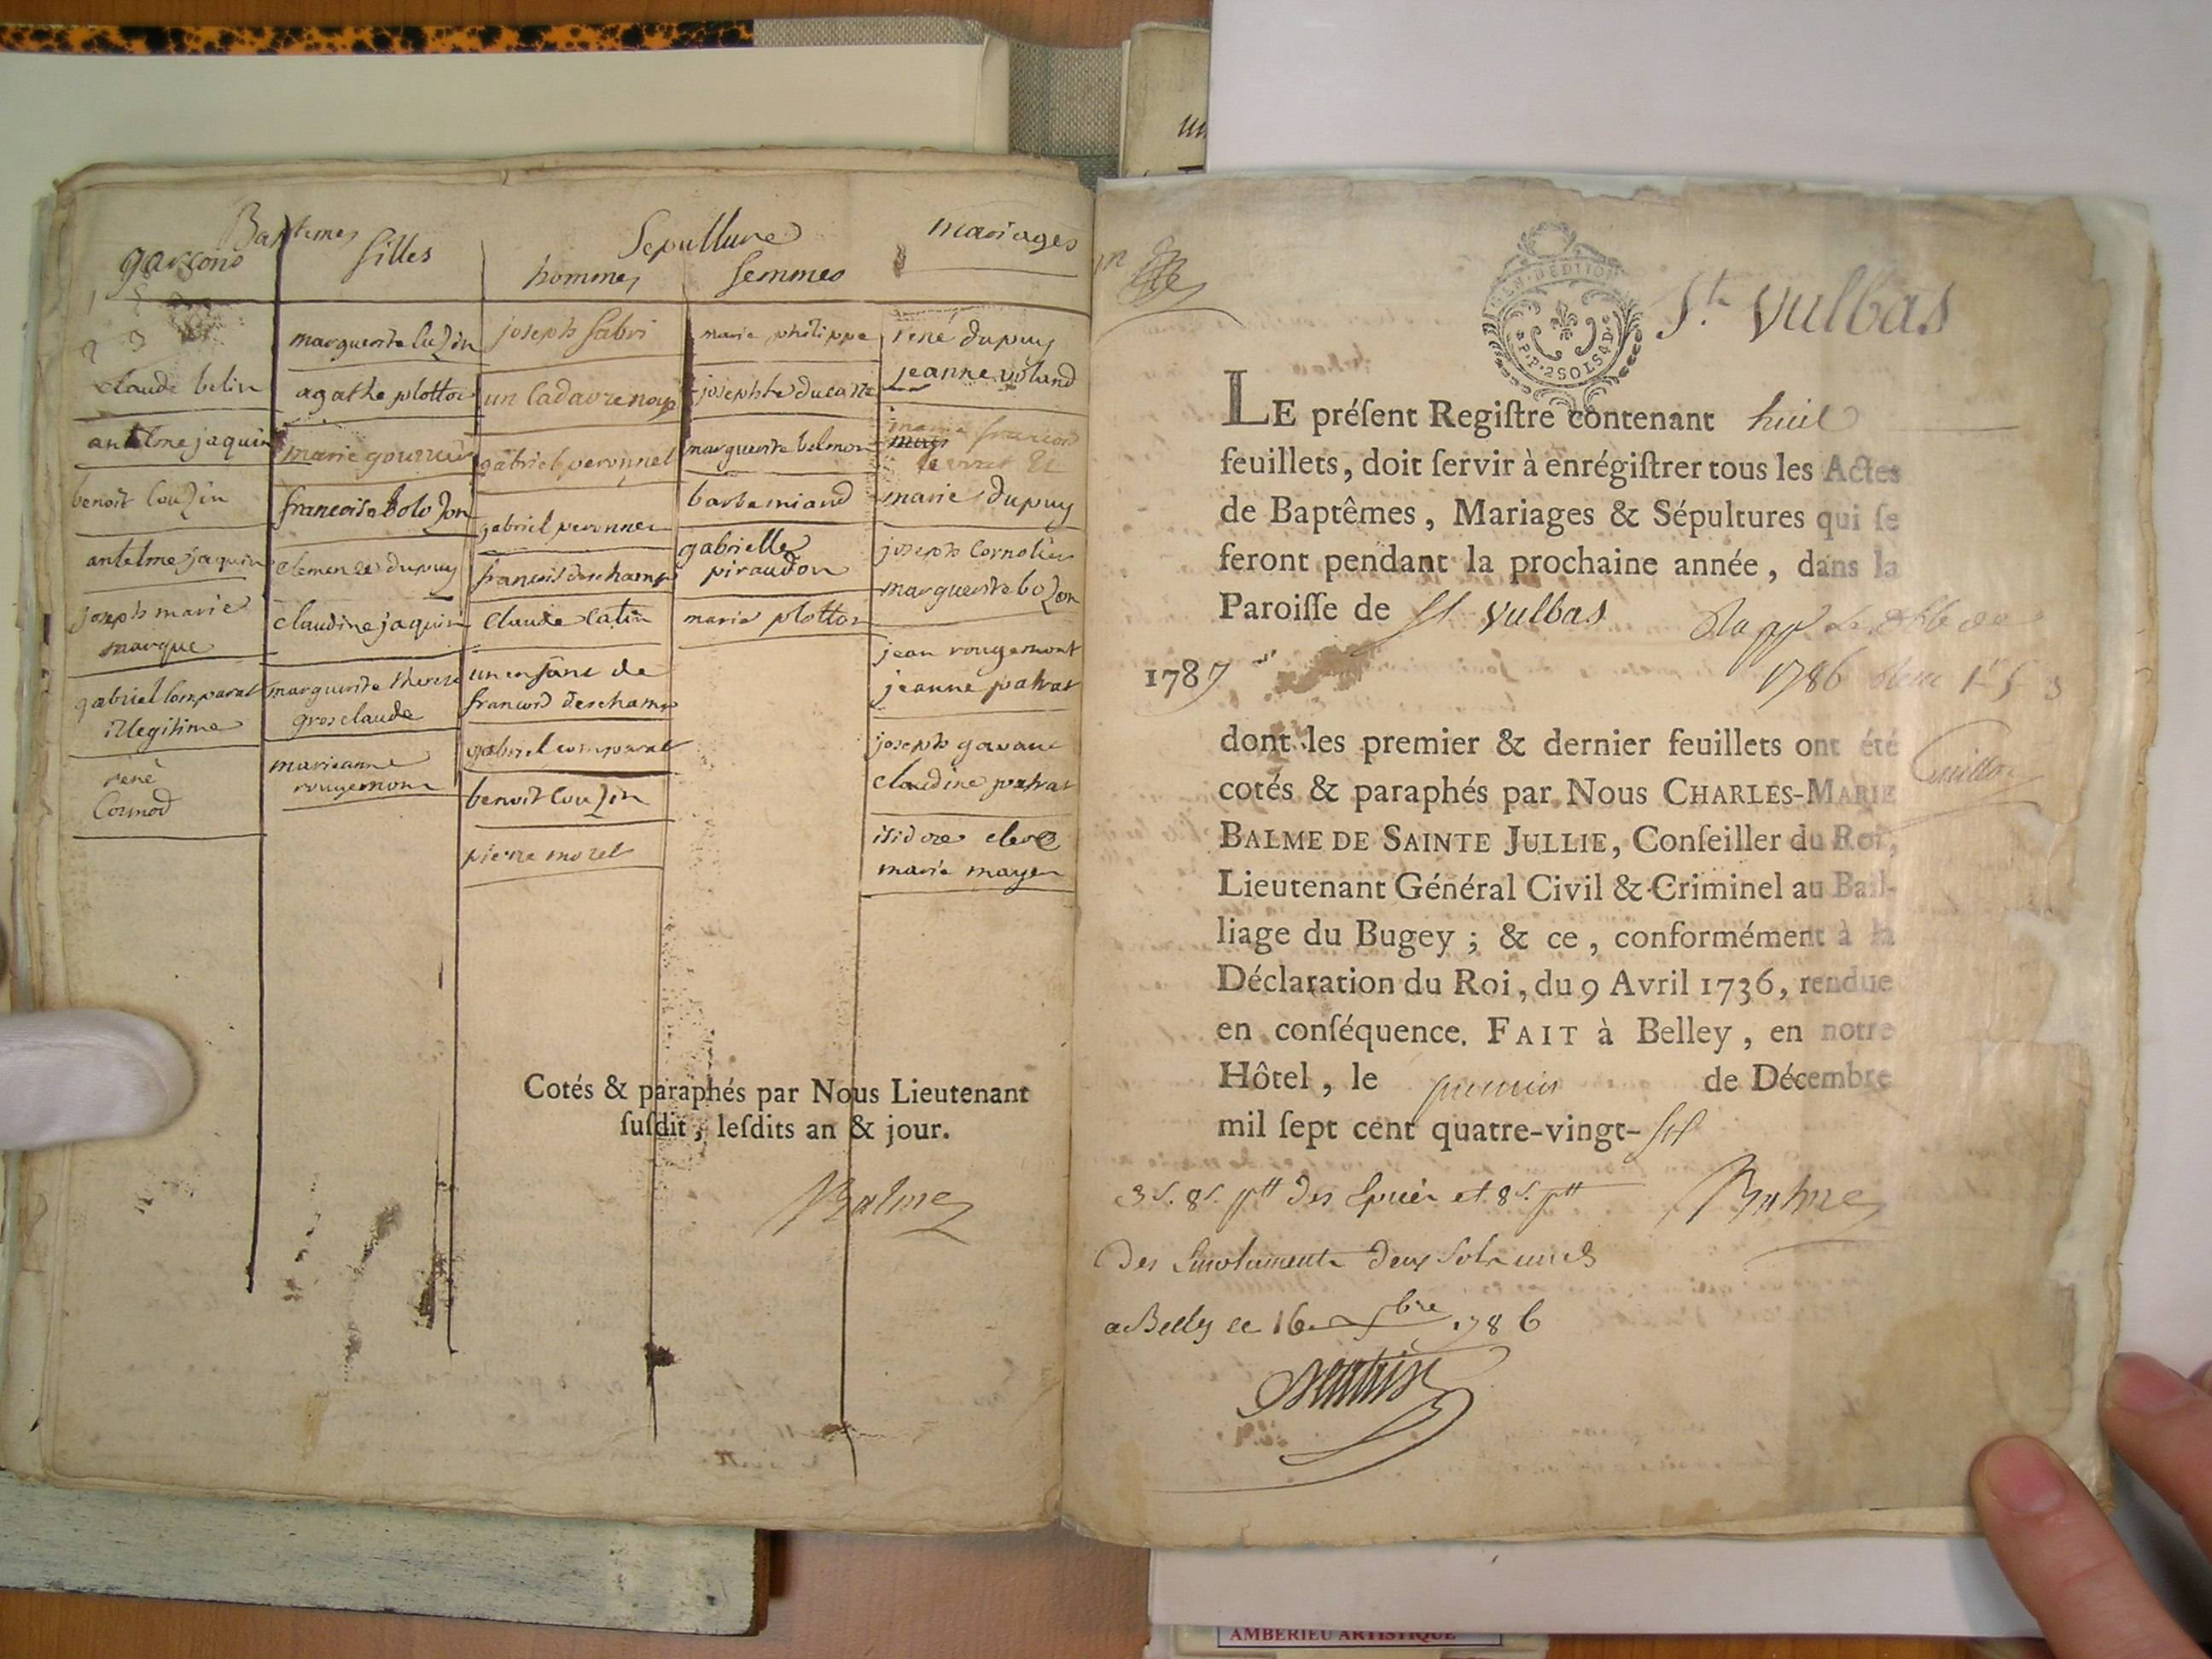 Baptemes
garcons
filles
claude belin
antelme jaquin
benoit Couzin
antelme jaquin
joseph marie
marque
gabriel Comparat
illegitime
rené
Cormod
marguerite luzin
agathe plottor
marie
francoise bolozon
clemence dupuy
claudine jaquin
marguerite therese
grosclaude
marieanne
rougemont
Sepulture
hommes
femmes
joseph fabri
un Cadavre noyé
gabriel peronnet
gabriel peronnet
francois deschamp
Claude Catin
un enfant de
francois deschamp
gabriel comparat
benoit Couzin
pierre morel
marie philippe
josephte ducarre
marguerite belmon
barbe miand
gabrielle
piraudon
marie plotton
mariages
rené dupuy
jeanne voland
marie dupuy
joseph Cornolier
marguerite bozon
jean rougemont
jeanne patrat
joseph gavant
claudine patrat
isidore
marie mayer
Cotés & paraphés par Nous Lieutenant
susdit, lesdits an & jour.
Balme
St. Vulbas
2 SOLS 4 D.
LE présent Registre contenant huit
feuillets, doit servir à enrégistrer tous les Actes
de Baptêmes, Mariages & Sépultures qui se
feront pendant la prochaine année, dans la
Paroisse de St Vulbas
1787
1786
dont les premier & dernier feuillets ont été
cotés & paraphés par Nous CHARLES-MARIE
BALME DE SAINTE JULLIE, Conseiller du Roi,
Lieutenant Général Civil & Criminel au Bail-
liage du Bugey ; & ce, conformément à la
Déclaration du Roi, du 9 Avril 1736, rendue
en conséquence. FAIT à Belley, en notre
Hôtel, le premier de Décembre
mil sept cent quatre-vingt-six
Balme
a Belley le 16 1786
AMBERIEU ARTISTIQUE